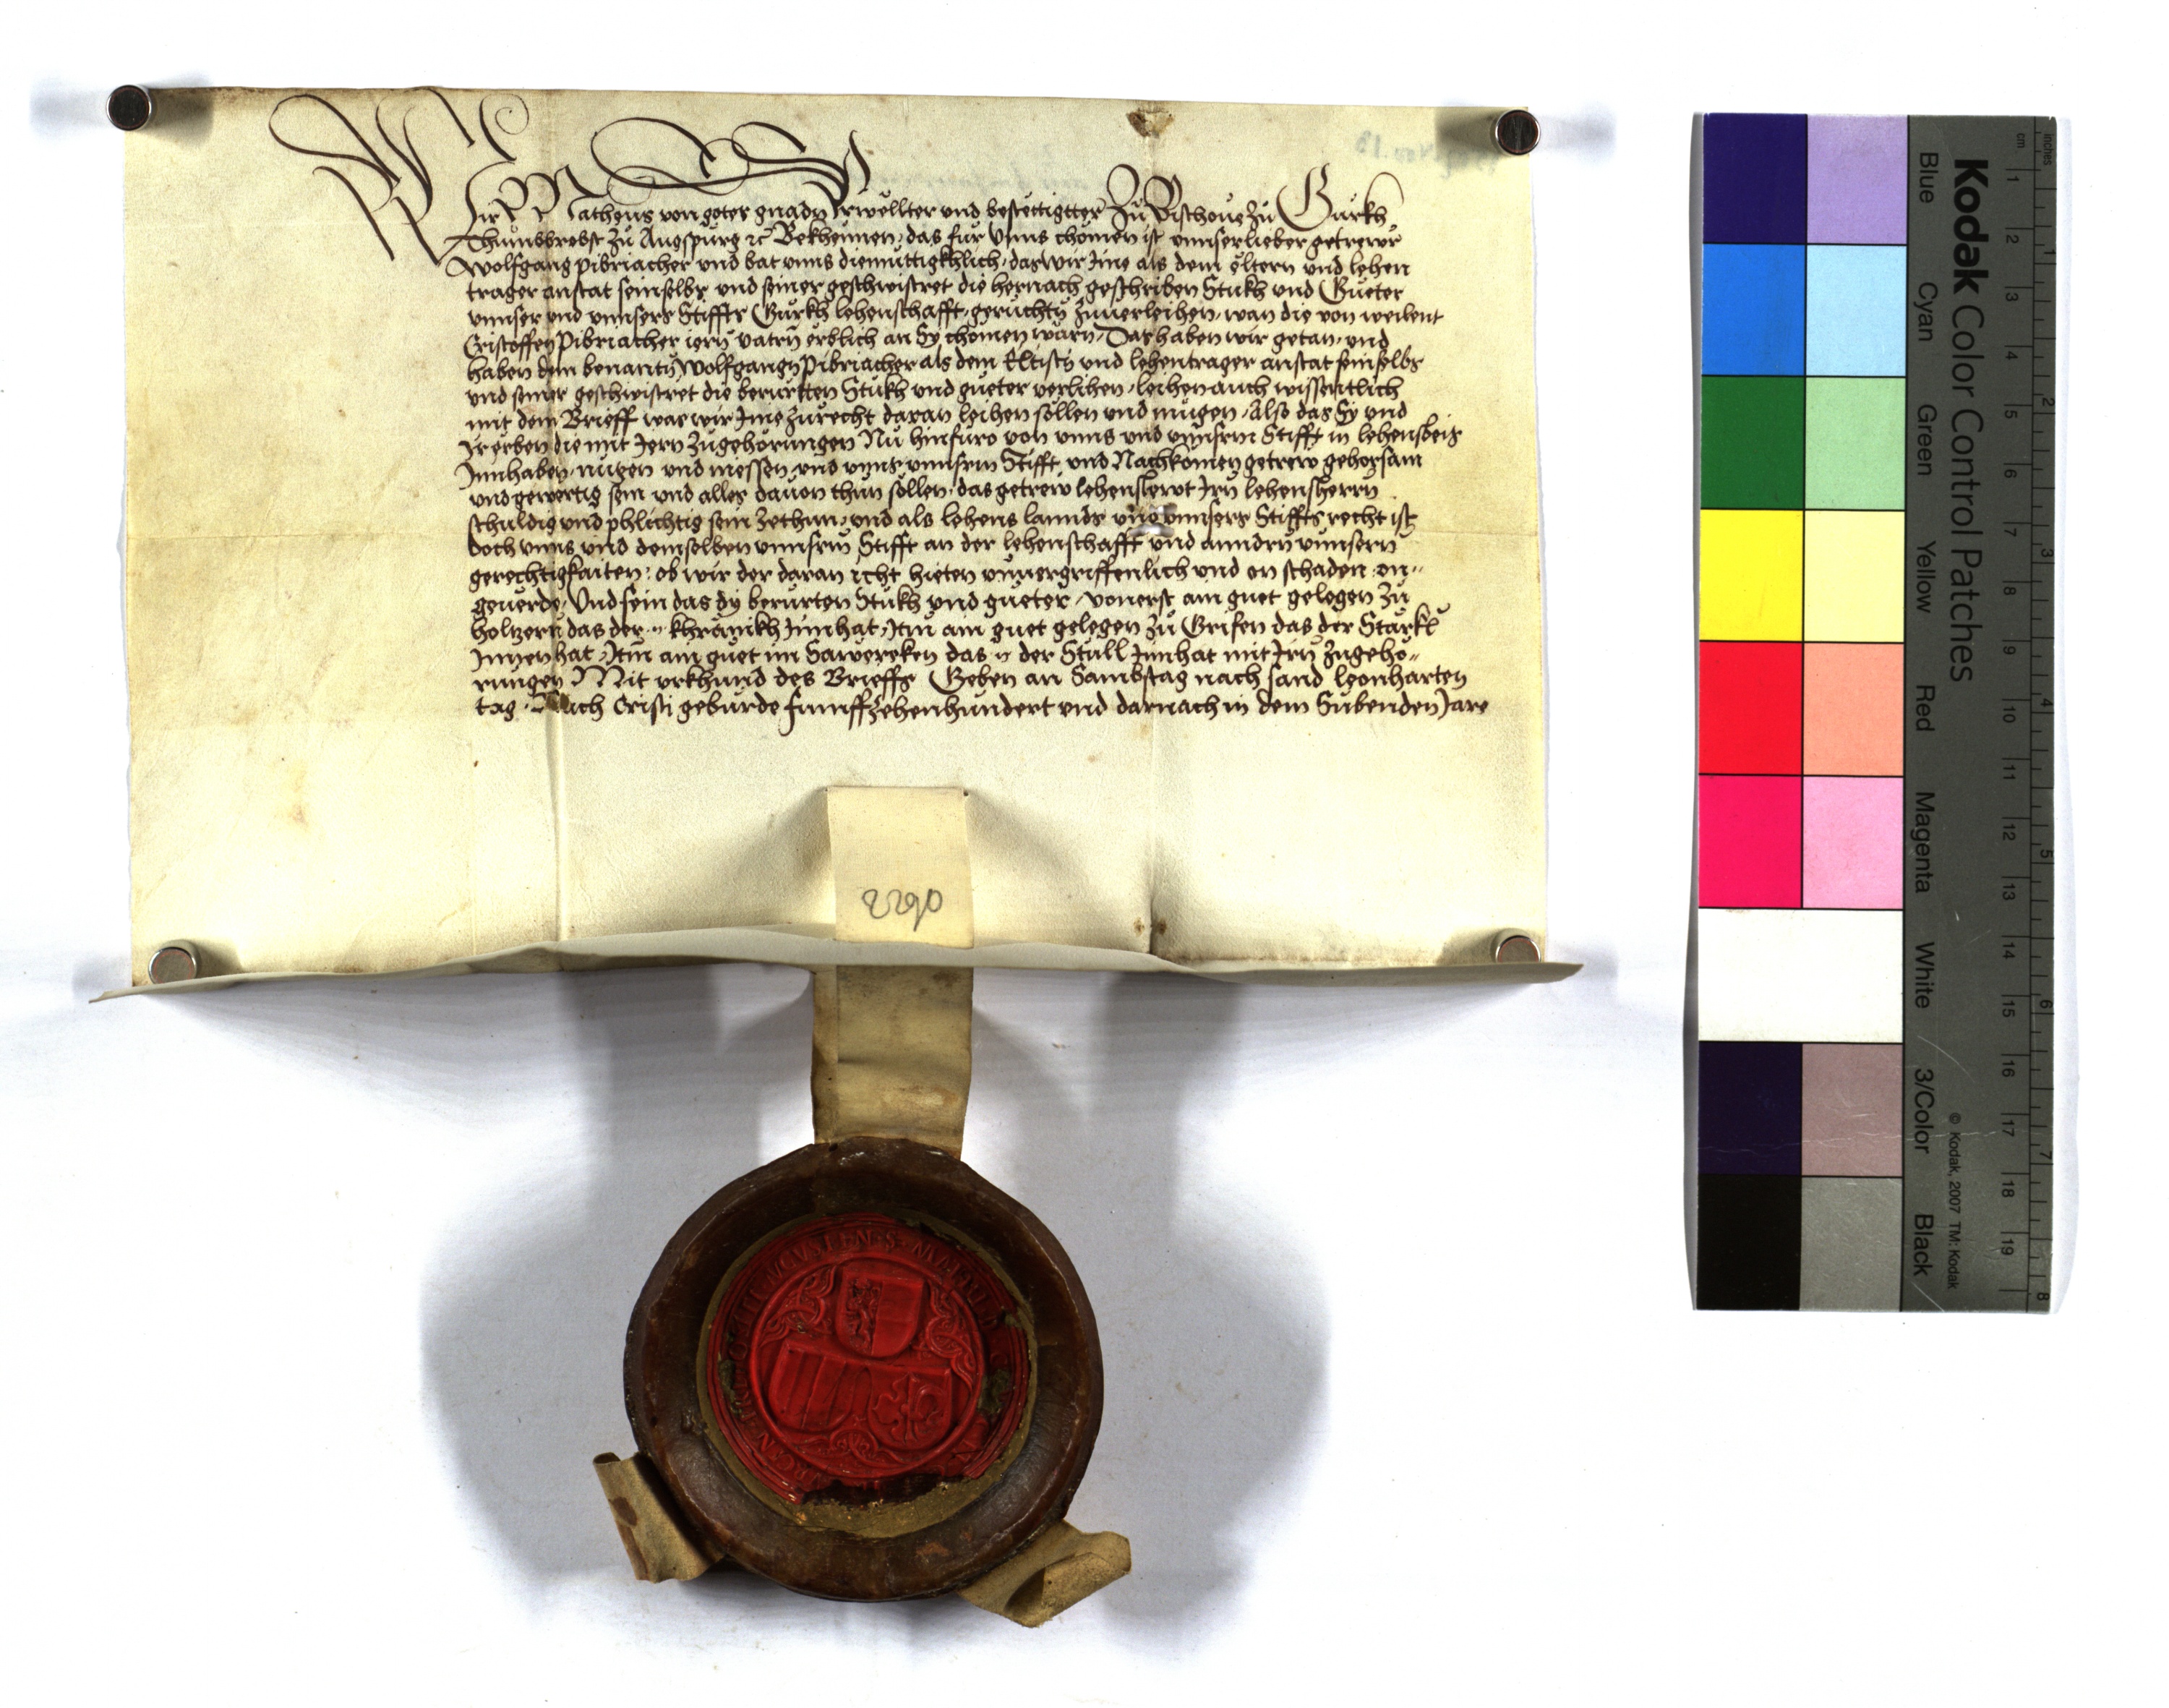 Wir Matheus von gotes gnadn Erwellter und bestettigtter Zu Bischove zu Gurkh
Thumbbrobst zu Augspurg etc Bekhennen, das fur unns chomen ist unnser lieber getrewr
Wolfgang Pibriacher und bat unns diemuttigkhlich, das wir Ime als dem eltern und lehen
trager anstat seinselbs und seiner geschwistret die hernach geschriben Stukh und Gueter
unnser und unnsers Stiffts Gurkh lehenschafft, geruchtn zuuerleihen, wan die von weilent
Cristoffen Pibriacher iern vatrn erblich an Sy chomen wärn, Das haben wir getan, und
haben dem benantn Wolfgangn Pibriacher als dem Eltistn und lehentrager anstat seinselbs
und seiner geschwistret die berurtten Stukh und gueter verlihen, leihen auch wissentlich
mit dem Brieff was wir Ime zurecht daran leihen sollen und mugen, Also das Sy und
Ir erben die mit Iern zugehorungen Nu hinfuro von unns und unnserm Stifft in lehensweis
Innhaben, nutzen und niessen, und unns unnserm Stifft, und Nachkomen getrew gehorsam
und gewertig sein und alles dauon thun sollen, das getrew lehenslewt Irn lehensherrn
schuldig und phlichtig sein zethun, und als lehens lannds und unnsers Stiffts recht ist
doch unns und demselben unnserm Stifft an der lehenschafft und anndrn unnsern
gerechtigkaiten, ob wir der daran icht hieten unuergriffenlich und on schaden on=
geuerde, Und sein das dy berurten Stukh und gueter, vonerst ain guet gelegen zu
holtzern das der .. khränikh Innhat, Itm ain guet gelegen zu Grifen das der Starkl
Innen hat, Itm ain guet im Sawereken das .. der Stull Innhat mit Irn zugeho=
rungen Mit urkhund des Brieffs Geben an Sambstag nach sand Leonharten
tag. Nach Cristi geburde funffzehenhundert und darnach in dem Subenden Jare
2290
Kodak Color Control Patches
Blue Cyan Green Yellow Red Magenta White 3/Color Black
© Kodak, 2007 TM: Kodak
inches
cm
1 2 3 4 5 6 7 8 9 10 11 12 13 14 15 16 17 18 19
1 2 3 4 5 6 7 8